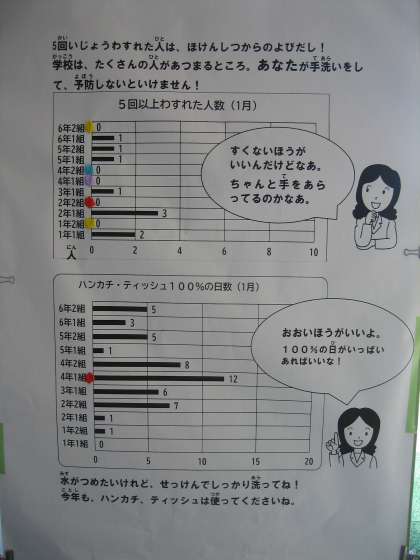 5回いじょうわすれた人は、ほけんしつからのよびだし！
学校は、たくさんの人があつまるところ。あなたが手洗いをし
て、予防しないといけません！
５回以上わすれた人数（1月）
6年2組 0
6年1組 1
5年2組 1
5年1組 1
4年2組 0
4年1組 0
3年1組 1
2年2組 0
2年1組 3
1年2組 0
1年1組 2
人 0 2 4 6 8 10
すくないほうが
いいんだけどなあ。
ちゃんと手をあら
ってるのかなあ。
ハンカチ・ティッシュ１００％の日数（1月）
6年2組 5
6年1組 3
5年2組 5
5年1組 1
4年2組 8
4年1組 12
3年1組 6
2年2組 7
2年1組 1
1年2組 1
1年1組 0
0 5 10 15 20
おおいほうがいいよ。
１００％の日がいっぱい
あればいいな！
水がつめたいけれど、せっけんでしっかり洗ってね！
今年も、ハンカチ、ティッシュは使ってくださいね。